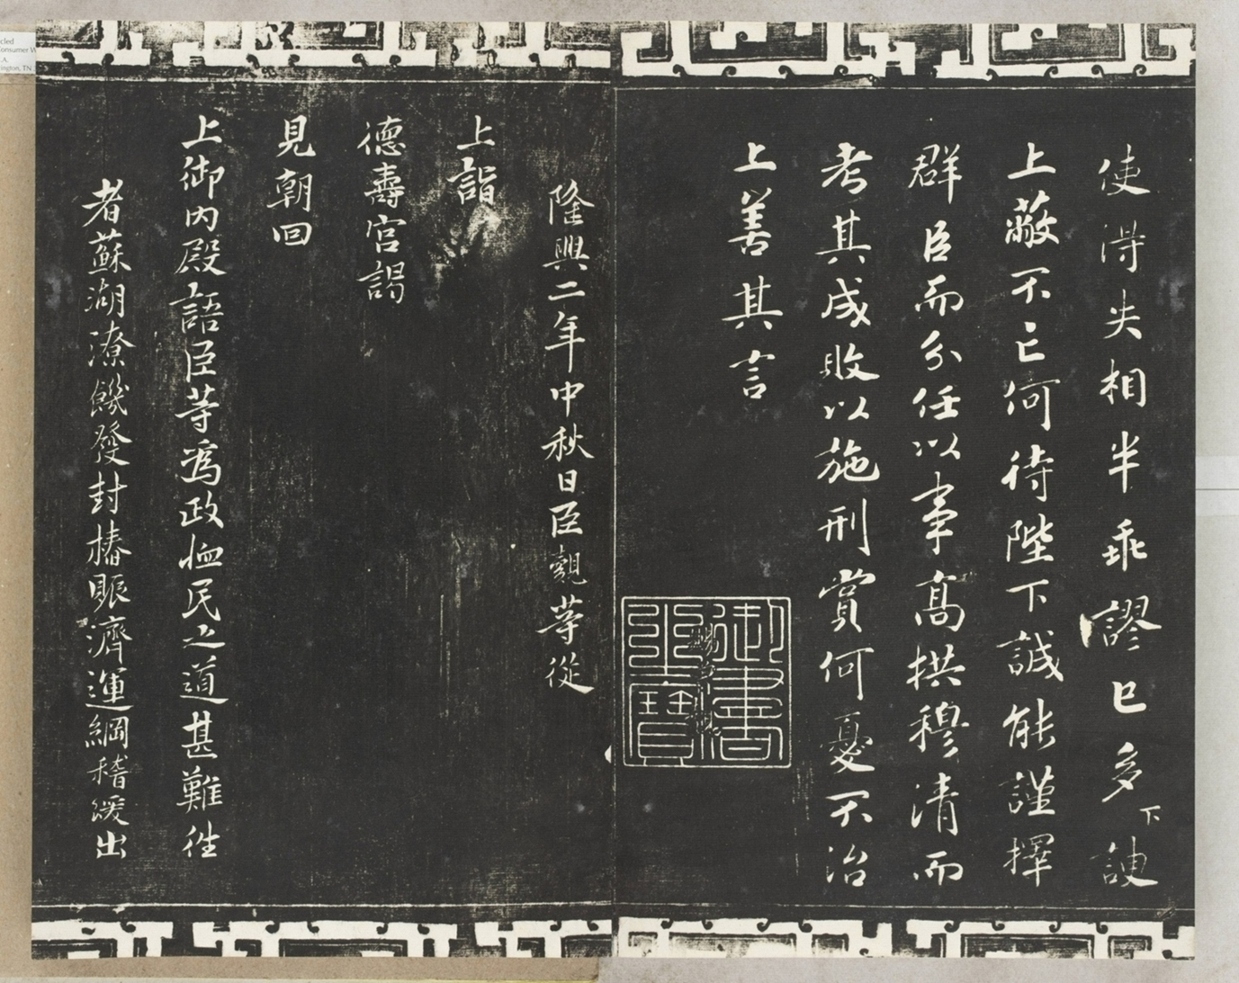 使得失相半乖謬已多下諛
上蔽不亡何待陛下誠能謹擇
群臣而分任以事高拱穆清而
考其成敗以施刑賞何憂不治
上善其言
御書之寶
隆興二年中秋日臣覿等從
上詣
德壽宮謁
見朝回
上御內殿語臣等為政恤民之道甚難徃
者蘇湖潦饑發封樁賑濟運綱稽緩出